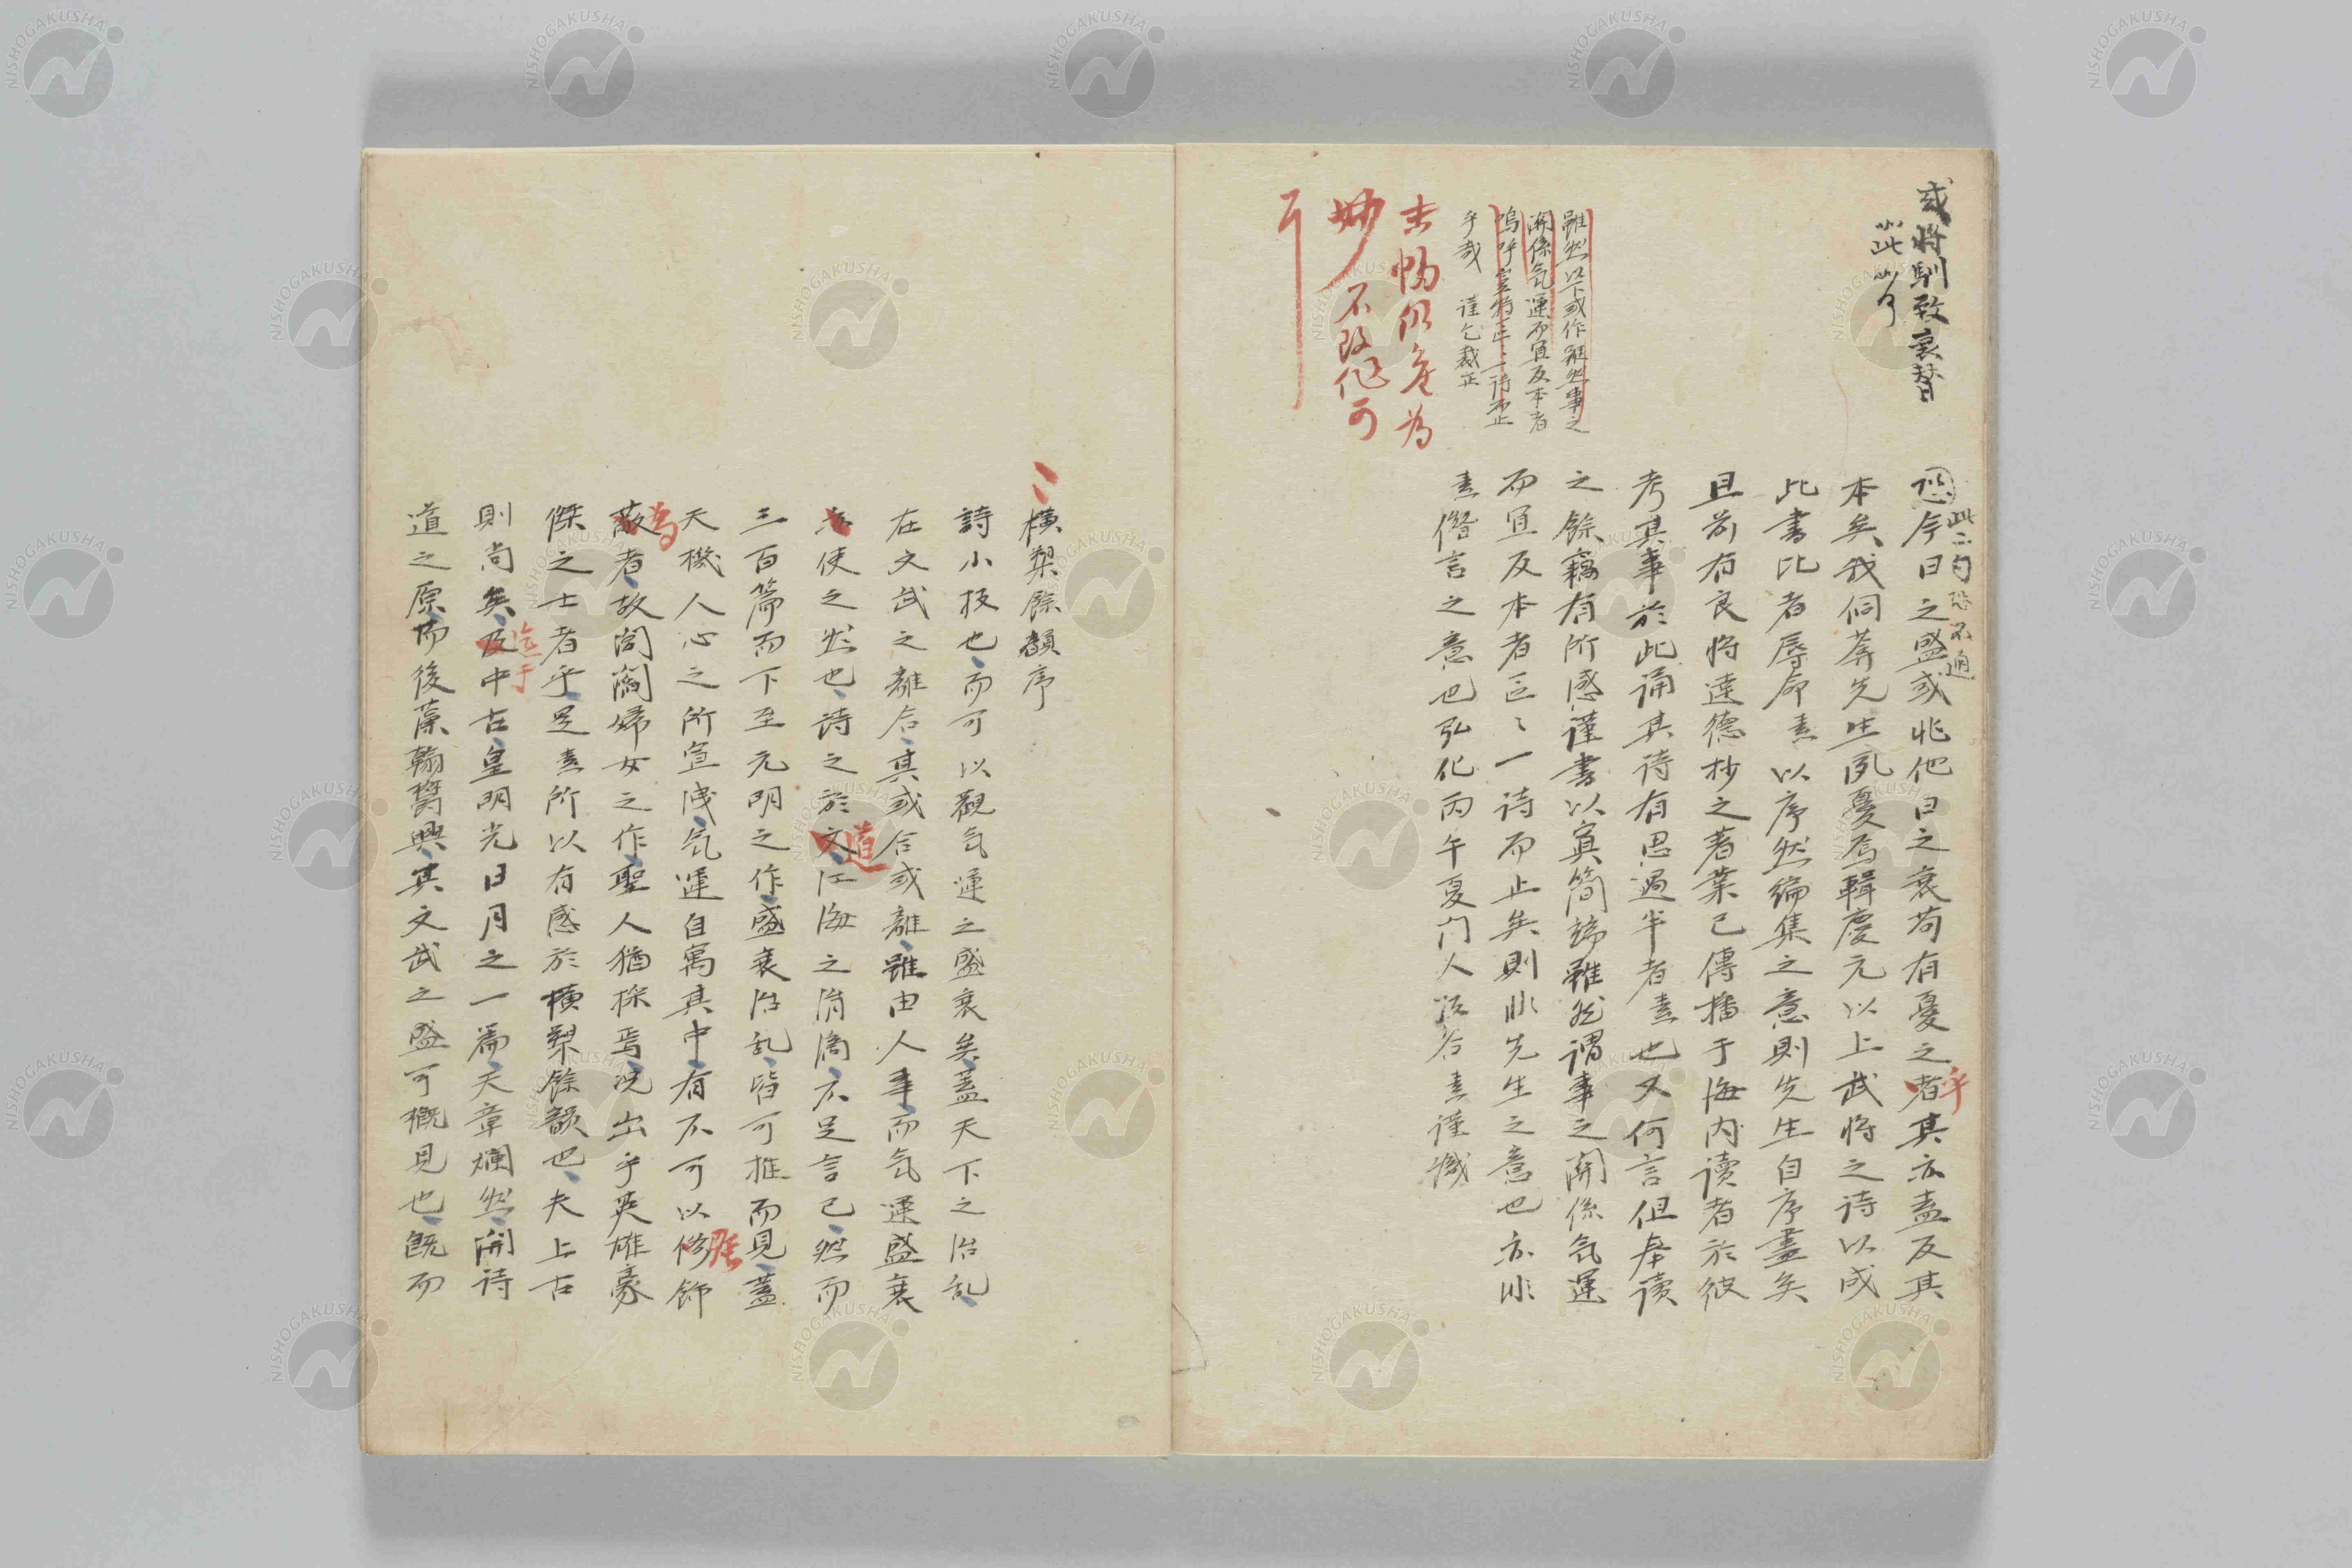 或将馴致衰替
此二句恐不通
恐今日之盛或兆他日之衰苟有憂之者其亦盍反其
乎
本矣我侗菴先生夙憂焉輯慶元以上武将之詩以成
此書比者辱命素以序然編集之意則先生自序盡矣
且前有良将達德抄之著業已傳播于海内讀者於彼
考其事於此誦其詩有思過半者素也又何言但奉讀
之餘竊有所感謹書以寘簡端雖然謂事之関係気運
而宜反本者區々一詩而止矣則非先生之意也亦非
素僭言之意也弘化丙午夏门人谷素謹識
雖然以下或作雖然事之
関係気運而宜反本者
嗚呼豈特區々一詩而止
乎哉 謹乞裁正
未愜仍舊為
妙不改作可
横槊餘韻序
詩小技也而可以觀気運之盛衰矣蓋天下之治乱
在文武之離合其或合或離雖由人事而気運盛衰
使之然也詩之於文江海之涓滴不足言已然而
道
三百篇而下至元明之作盛衰治乱皆可推而見蓋
天機人心之所宣洩気運自寓其中有不可以修飾
為
蔽者故閭閻婦女之作聖人猶採焉况出乎英雄豪
傑之士者乎是素所以有感於横槊餘韻也夫上古
則尚矣及中古皇明光日月之一篇天章爛然開詩
迄于
道之原而後藻翰嗣興其文武之盛可概見也既而